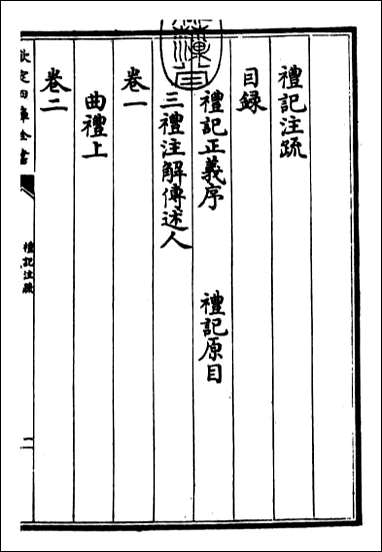 禮記注疏
目錄
禮記正義序 禮記原目
三禮注解傳述人
卷一
曲禮上
卷二
欽定四庫全書
禮記注疏